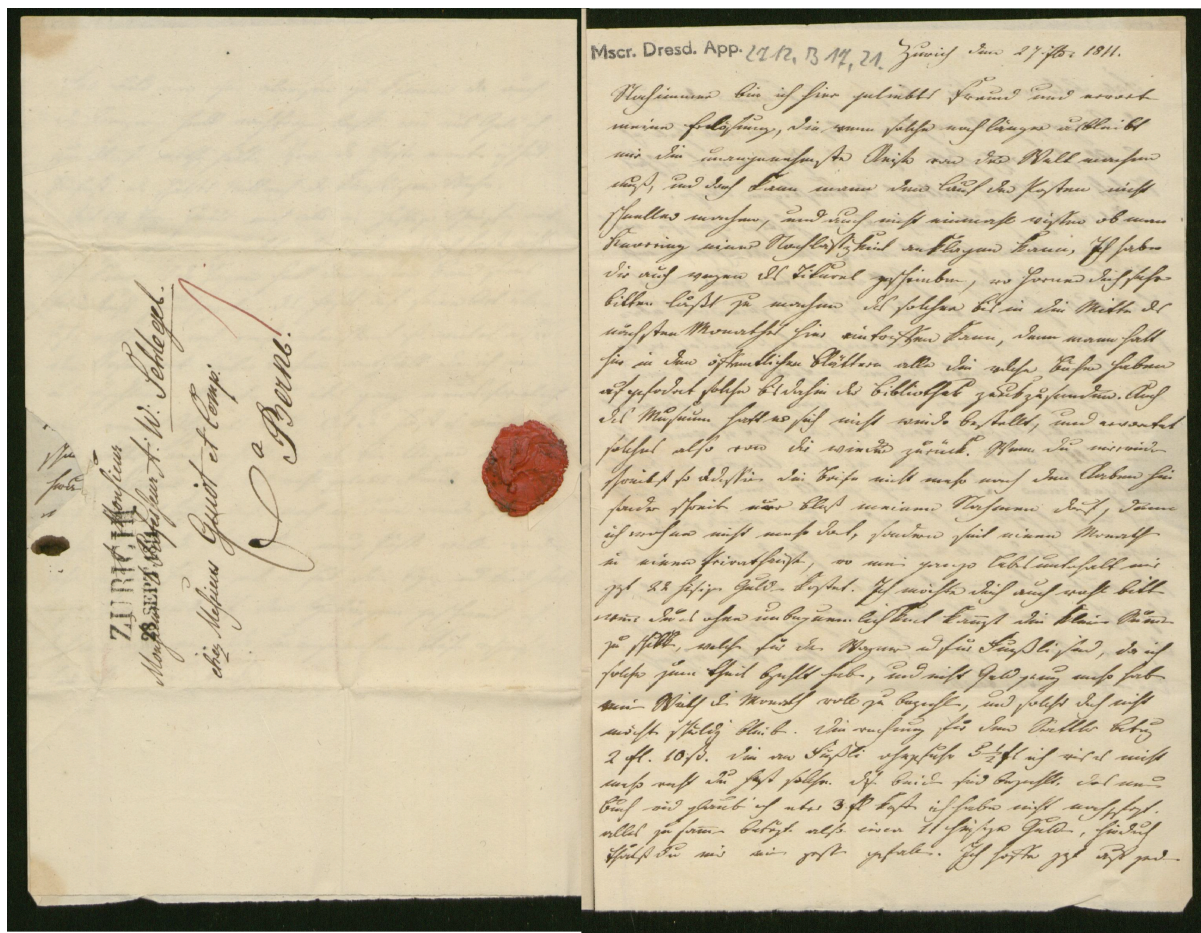 ZURICH
28 SEPT. 1811
Monsieur
Monsieur le Professeur A. W. Schlegel.
chez Messieurs Guiot et Comp:
a Berne.
Mscr. Dresd. App. 2712, B 17, 21.
Zürich den 27. 7br 1811.
Noch immer bin ich hier geliebter Freund und erwarte
meine Erlösung, die wenn solche noch länger ausbleibt
mir die unangenehmste Reise von der Welt machen
muß, und doch kann mann den Lauf der Posten nicht
schneller machen, und auch nicht einmahl wissen ob man
Knorring einer Nachlässigkeit anklagen kann. Ich habe
dir auch wegen des Titurel geschrieben, wo Horner dich sehr
bitten läßt zu machen das solcher bis in die Mitte des
nächsten Monathes hier eintreffen kann, denn mann hatt
hier in den öffentlichen Blättern alle die welche Bücher haben
aufgefodert solche bis dahin der Bibliothek zurükzusenden. Auch
das Museum hatt es sich nicht wieder bestellt, und erwartet
solches also von dir wieder zurück. Wenn du mir wieder
schreibst so adressire die Briefe nicht mehr nach dem Raben hin
sonder schreib nur bloß meinen Nahmen drauf, denn
ich wohne nicht mehr dort, sondern seit einem Monath
in einem Privathause, wo mein ganzer Lebensunterhalt mir
22 hiesige Gulden kostet. Ich möchte dich auch wohl bitten
wenn du es ohne unbequemlichkeit kannst die kleine Summe
zu schicken, welche für den Wagner und für Fueßli sind, da ich
solche zum theil bezahlt habe, und nicht Geld genug mehr habe
mein Wirth den Monath voll zu bezahlen, und solches doch nicht
möchte schuldig bleiben. Die rechnung für den Sattler betrug
2 fl. 10 ß. die an Füßli ohngefähr 5½ fl ich weis es nicht
mehr recht du hast solche. diese beide sind bezahlt. das neue
Buch wird glaub ich etwa 3 fl kosten ich habe nicht nachgefragt.
alles zusammen beträgt also circa 11 hiesige Gulden, hiedurch
thätest du mir ein großer gefallen. Ich hoffe jetzt